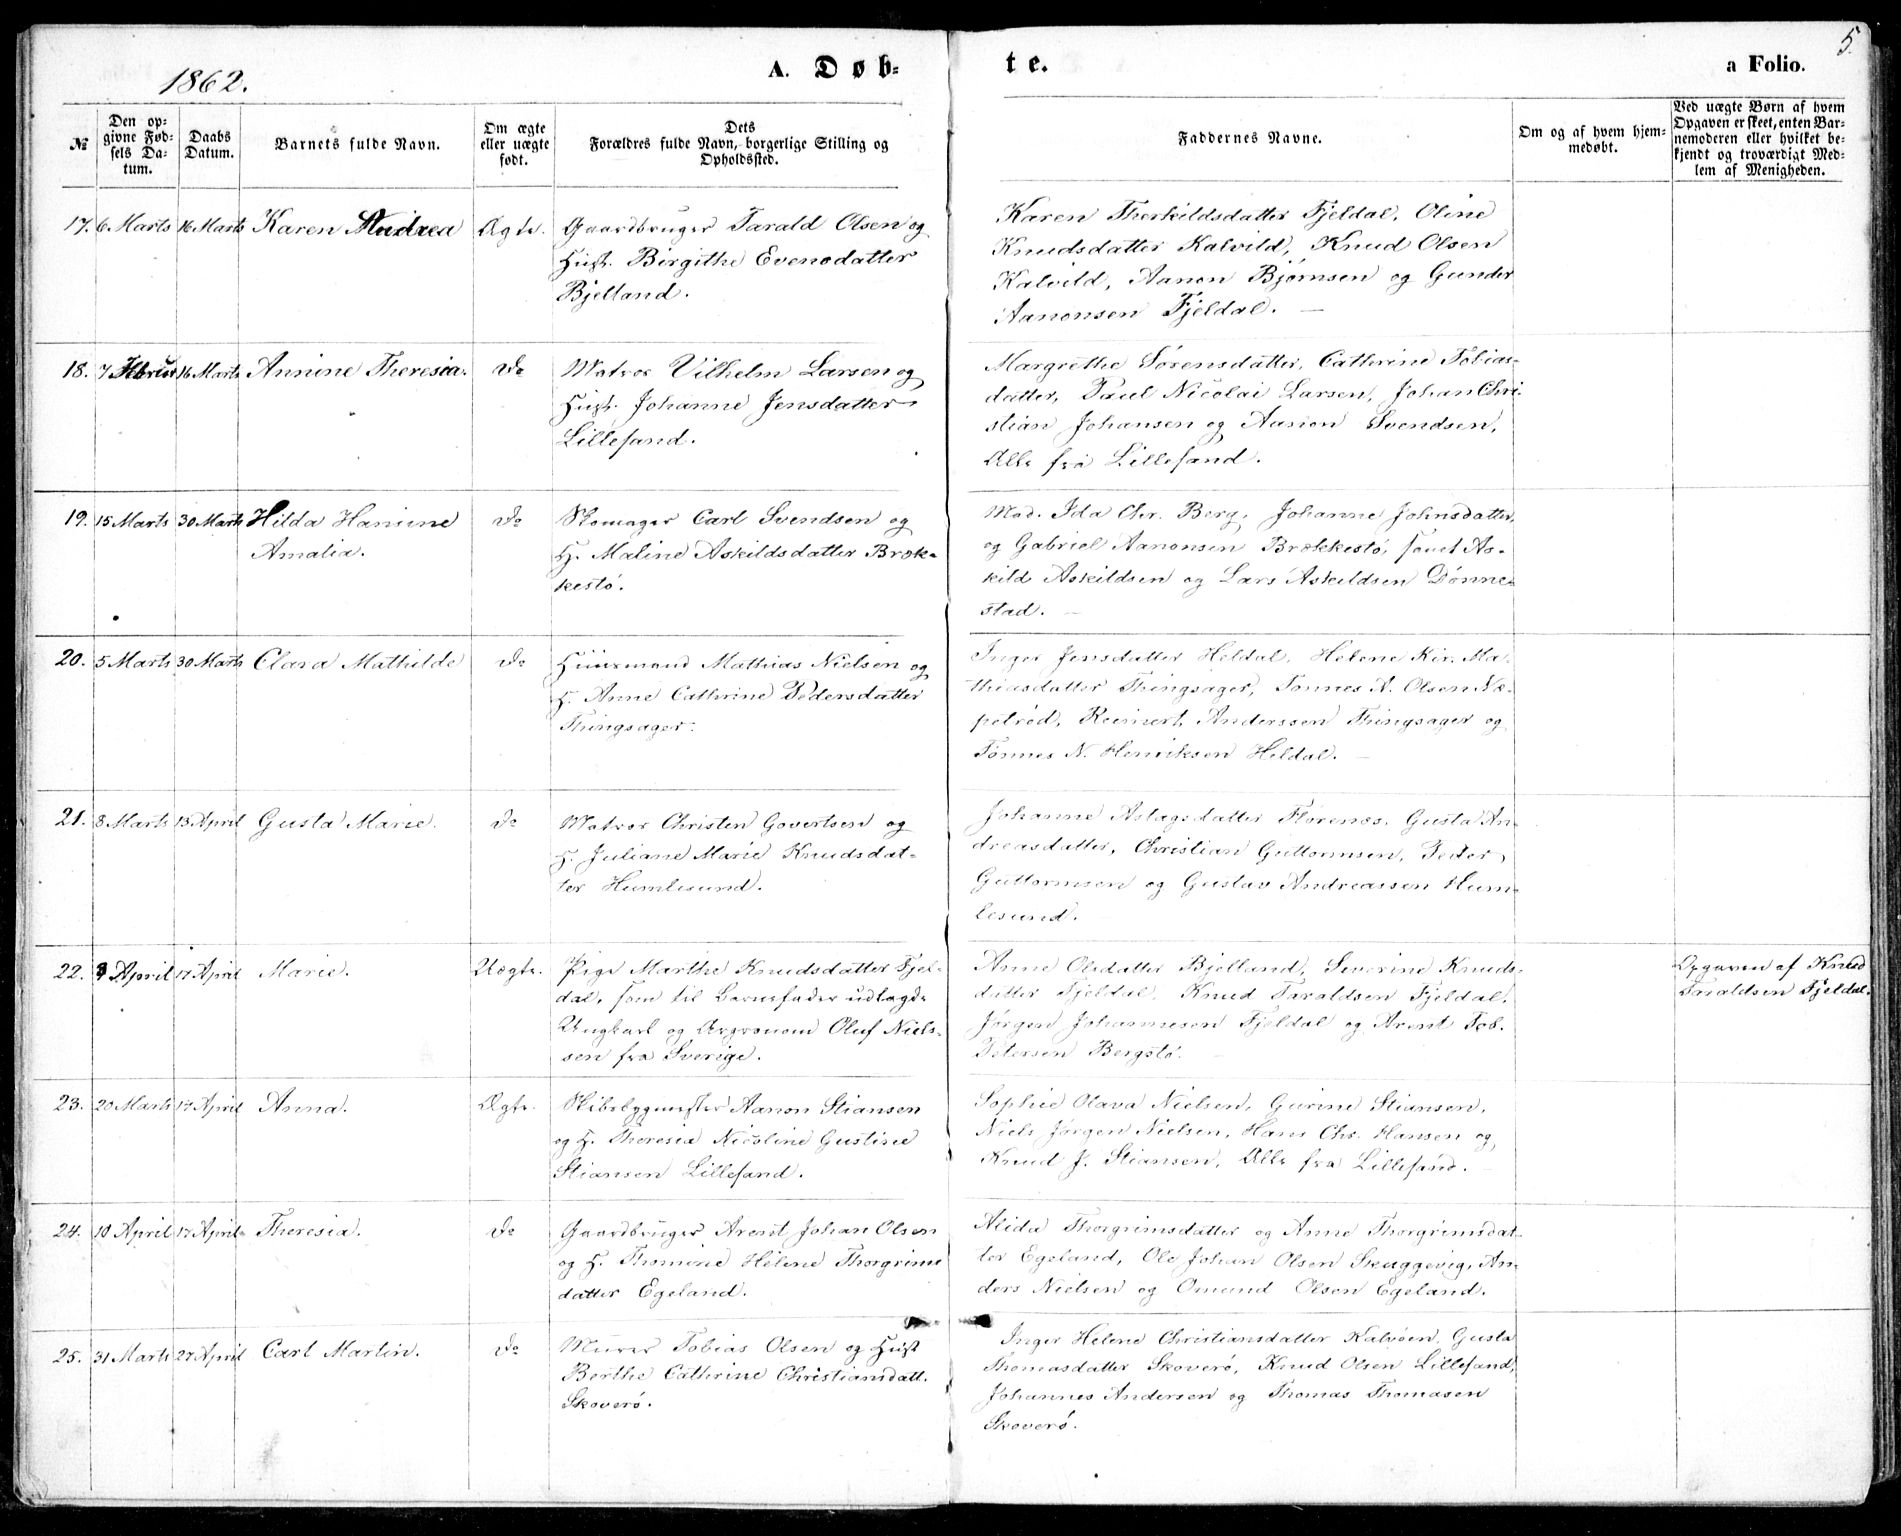 5.
1862.
A. Døb-
te.
a Folio.
№
Den op-
givne Fød-
sels Da-
tum.
Daabs
Datum.
Barnets fulde Navn.
Om ægte
eller uægte
født.
Dets
Forældres fulde Navn, borgerlige Stilling og
Opholdssted.
Faddernes Navne.
Om og af hvem hjem-
medøbt.
Ved uægte Børn af hvem
Opgaven er skeet, enten Bar-
nemoderen eller hvilket be-
kjendt og troværdigt Med-
lem af Menigheden.
17. 6 Marts 16 Marts Karen Andrea Ægte.
Gaardbruger Tarald Olsen og
Hust. Birgithe Evensdatter
Bjelland.
Karen Therkildsdatter Fjeldal, Oline
Knudsdatter Kalvild, Knud Olsen
Kalvild, Aanon Bjørnsen og Gunder
Aanonsen Fjeldal. —
18. 7 Februar 16 Marts Annine Theresia. Do
Matros Vilhelm Larsen og
Hust. Johanne Jensdatter
Lillesand.
Margrethe Sørensdatter, Cathrine Tobias-
datter, Paul Nicolai Larsen, Johan Chri-
stian Johansen og Aanon Svendsen,
Alle fra Lillesand.
19. 15 Marts 30 Marts Hilda Hansine
Amalia.
Do
Skomager Carl Svendsen og
H. Maline Askildsdatter Bræk-
kestø.
Mad. Ida Chr. Berg, Johanne Johnsdatter,
og Gabriel Aanonsen Brækkestø, samt As-
kild Askildsen og Lars Askildsen Dønne-
stad. —
20. 5 Marts 30 Marts Clara Mathilde Do
Huusmand Mathias Nielsen og
H. Anne Cathrine Pedersdatter
Thingsager.
Inger Jensdatter Heldal, Helene Kir. Ma-
thiasdatter Thingsager, Tønnes A. Olsen Næ-
petrød, Reinert Anderssen Thingsager og
Tønnes N. Henriksen Heldal. —
21. 8 Marts 13 April Gusta Marie. Do
Matros Christen Govertsen og
H. Juliane Marie Knudsdat-
ter Humlesund.
Johanne Aslagsdatter Florenæs, Gusta An-
dreasdatter, Christian Guttormsen, Peder
Guttormsen og Gustav Andreassen Hum-
lesund. —
22. April 17 April Marie. Uægte.
Pige Marthe Knudsdatter Fjel-
dal, som til Barnefader udlagde
Ungkarl og Agronom Oluf Niels-
sen fra Sverige.
Anne Olsdatter Bjelland, Severine Knuds-
datter Fjeldal, Knud Taraldsen Fjeldal,
Jørgen Johannesen Fjeldal og Arent Tob.
Petersen Bergstø. —
Opgaven af Knud
Taraldsen Fjeldal.
23. 20 Marts 17 April Anna. Ægte.
Skibsbygmester Aanon Stiansen
og H. Theresia Nicoline Gustine
Stiansen Lillesand.
Sophie Olava Nielsen, Gurine Stiansen,
Niels Jørgen Nielsen, Hans Chr. Hansen og
Knud J. Stiansen, Alle fra Lillesand. —
24. 10 April 17 April Theresia. Do
Gaardbruger Arent Johan Olsen
og H. Thomine Helene Thorgrims
datter Egeland.
Alida Thorgrimsdatter og Anne Thorgrimsdat-
ter Egeland, Ole Johan Olsen Skuggevig, An-
ders Nielsen og Omund Olsen Egeland.
25. 31 Marts 27 April Carl Martin. Do
Murer Tobias Olsen og Hust
Berthe Cathrine Christiansdatt.
Skoverø.
Inger Helene Christiansdatter Kalvøen, Gusta
Thomasdatter Skoverø, Knud Olsen Lillesand,
Johannes Andersen og Thomas Thomasen
Skoverø.